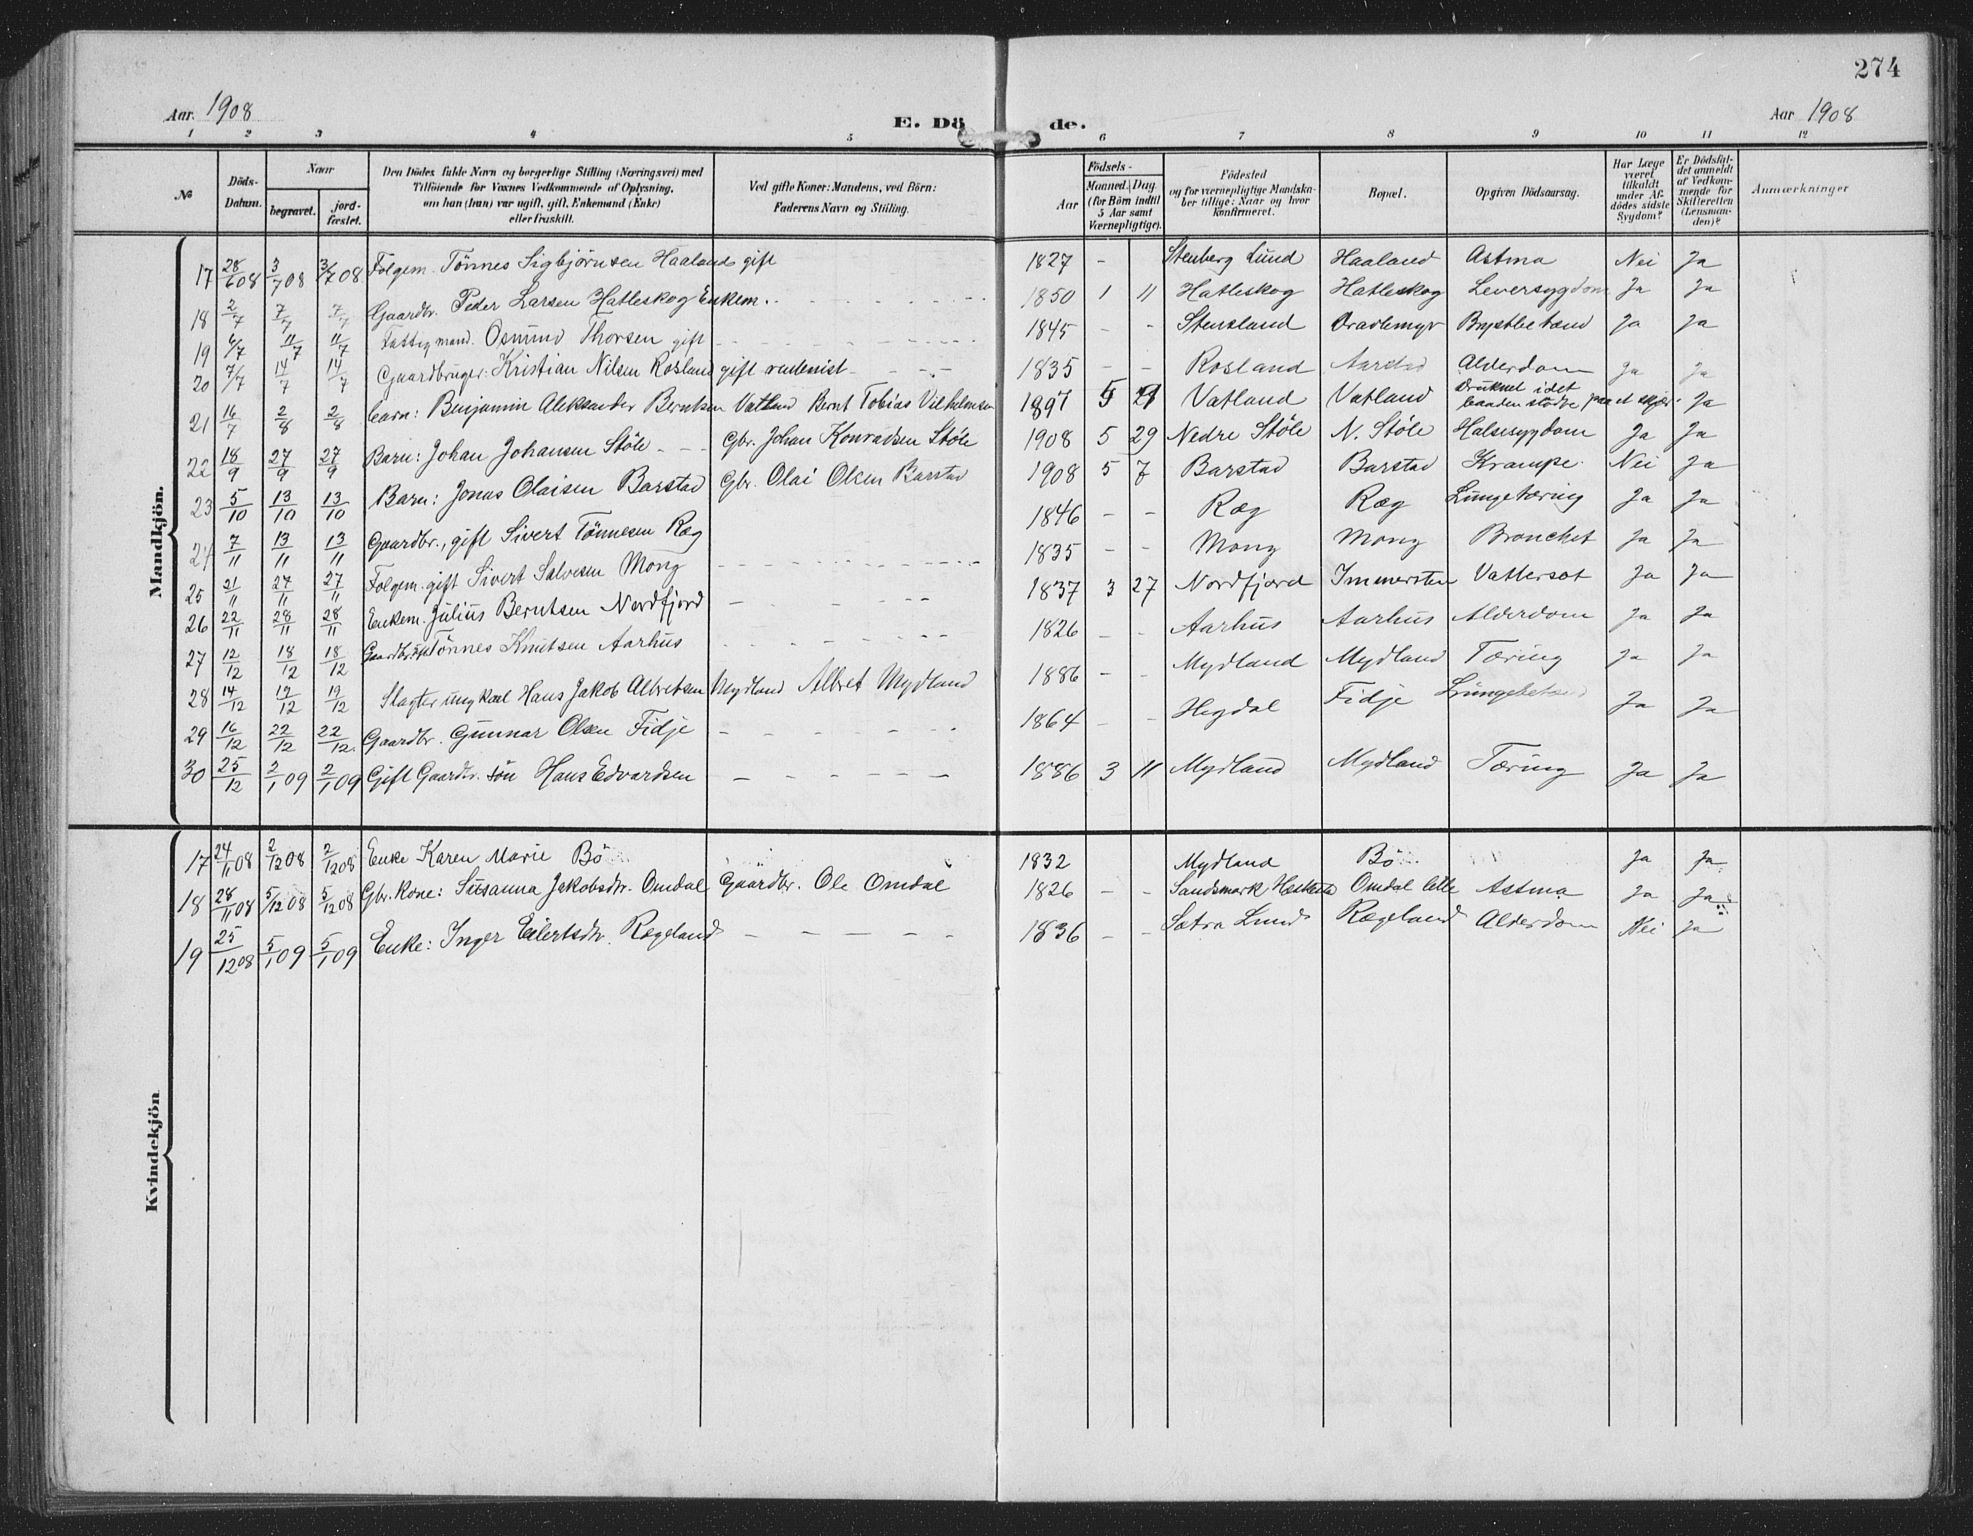 274
Aar. 1908
E. Dö
de.
Aar 1908
1 2 3 4 5 6 7 8 9 10 11 12
No
Döds-Datum.
Naar
begravet.
jord-fæstet.
Den Dödes fulde Navn og borgerlige Stilling (Næringsvei) med
Tilföiende for Voxnes Vedkommende af Oplysning,
om han (hun) var ugift, gift, Enkemand (Enke)
eller fraskilt.
Ved gifte Koner: Mandens, ved Börn:
Faderens Navn og Stilling.
Födsels-
Aar
Maaned. Dag.
(for Börn indtil
5 Aar samt
Værnepligtige).
Födested
og for værnepligtige Mandska-
ber tillige: Naar og hvor
konfirmeret.
Bopæl.
Opgiven Dödsaarsag.
Har Læge
været
tilkaldt
under Af-
dödes sidste
Sygdom?
Er Dödsfal-
det anmeldt
af Vedkom-
mende for
Skifteretten
(Lensman-
den)?
Anmærkninger
Mandkjön.
17 28/6 08 3/7 08 3/7 08 Folgem. Tönnes Sigbjörnsen Haaland gift 1827 - Stenberg Lund Haaland Astma Nei Ja
18 2/7 7/7 7/7 Gaardbr. Peder Larsen Hatleskog Enkem. 1850 1 11 Hatleskog Hatleskog Leversygdom Ja Ja
19 6/7 11/7 11/7 Fattigmand. Osmund Thorsen gift 1845 - - Stensland Dradlemyr Brystbetænd Ja Ja
20 7/7 14/7 14/7 Gaardbruger: Kristian Nilsen Rosland gift 1835 - - Rosland Aarstad Alderdom Ja Ja
21 16/7 2/8 2/8 barn: Benjamin Aleksander Berntsen Vatland Bernt Tobias Vilhelmsen 1897 5 Vatland Vatland Druknet idet baaden stödte paa et skjær. Ja
22 18/9 27/9 27/9 Barn: Johan Johansen Stöle - - Gbr. Johan Konradsen Stöle 1908 5 29 Nedre Stöle N. Stöle Halssygdom Ja Ja
23 5/10 13/10 13/10 Barn: Jonas Olaisen Barstad Gbr. Olai Olsen Barstad 1908 5 7 Barstad Barstad Krampe. Nei Ja
24 7/11 13/11 13/11 Gaardbr., gift Sivert Tönnesen Ræg 1846 - - Ræg Ræg Lungetæring Ja Ja
25 21/11 27/11 27/11 Folgem. gift Sivert Salvesen Mong 1835 - - Mong Mong Bronchit Ja Ja
26 22/11 28/11 28/11 Enkem. Julius Berntsen Nordfjord 1837 3 27 Nordfjord Immersten Vattersot Ja Ja
27 12/12 18/12 18/12 Gaardbr. Tönnes Knutsen Aarhus 1826 - - Aarhus Aarhus Alderdom Ja Ja
28 14/12 19/12 19/12 Slagter ungkarl Hans Jakob Albretsen Mydland Albret Mydland 1886 - - Mydland Mydland Tæring Ja Ja
29 16/12 22/12 22/12. Gaardbr. Gunnar Olsen Fidje 1864 - - Hegdal Fidje Ja Ja
30 25/12 2/1 09 2/1 09 Gift Gaardbr. sön Hans Edvardsen 1886 3 11 Mydland Mydland Tæring Ja Ja
Kvindekjön
17 24/11 08 2/12 08 2/12 08 Enke Karen Marie Bö 1832 Mydland Bö Ja Ja
18 28/11 08 5/12 08 5/12 08 Gbr. Kone: Susanna Jakobsdtr. Omdal Gaardbr. Ole Omdal 1826 - - Sandsmark Omdal Astma Ja Ja
19 25/12 08 5/1 09 5/1 09 Enke: Inger Eilertsdtr. Rægeland 1836 - - Sætra Lund Rægeland Alderdom Nei Ja